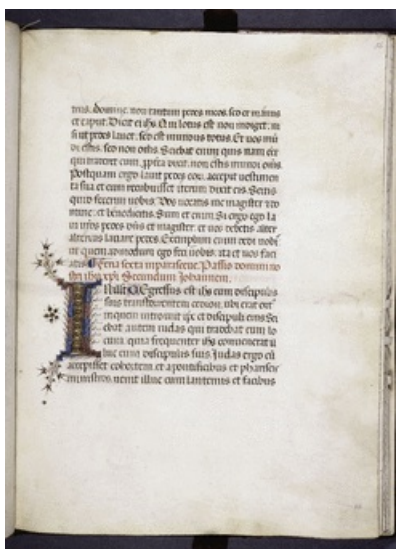 tris. domine. non tantum pedes meos. sed et manus
et caput. Dicit ei ihs. Qui lotus est non indiget. ni
si ut pedes lavet. sed est mundus totus. Et vos mū
di estis. sed non oīs. Sciebat enim quis nam eēt
qui traderet eum. ppterea dixit. non estis mundi oēs.
Postquam ergo lavit pedes eoɜ. accepit vestimen
ta sua et cum recubuisset iterum dixit eis. Scitis
quid fecerim vobis. Vos vocatis me magister et do
mine. et benedicitis. Sum et enim. Si ergo ego la
vi vr̄os pedes dn̄s et magister. et vos debetis alter
alterius lavare pedes. Exemplum enim dedi vobis
ut quem admodum ego feci vobis. ita et vos faci
atis. Feria sexta in parasceve. Passio domini no
stri ihū xp̄i Secundum Johannem.
In illo t. Egressus est ihs cum discipulis
suis trans torrentem cedron. ubi erat ort
in quem introivit ipe et discipuli eius. Sci
ebat autem iudas qui tradebat eum lo
cum. quia frequenter ihs convenerat il
luc cum discipulis suis. Judas ergo cū
accepisset cohortem. et a pontificibus et phariseis
ministros. venit illuc cum lanternis et facibus